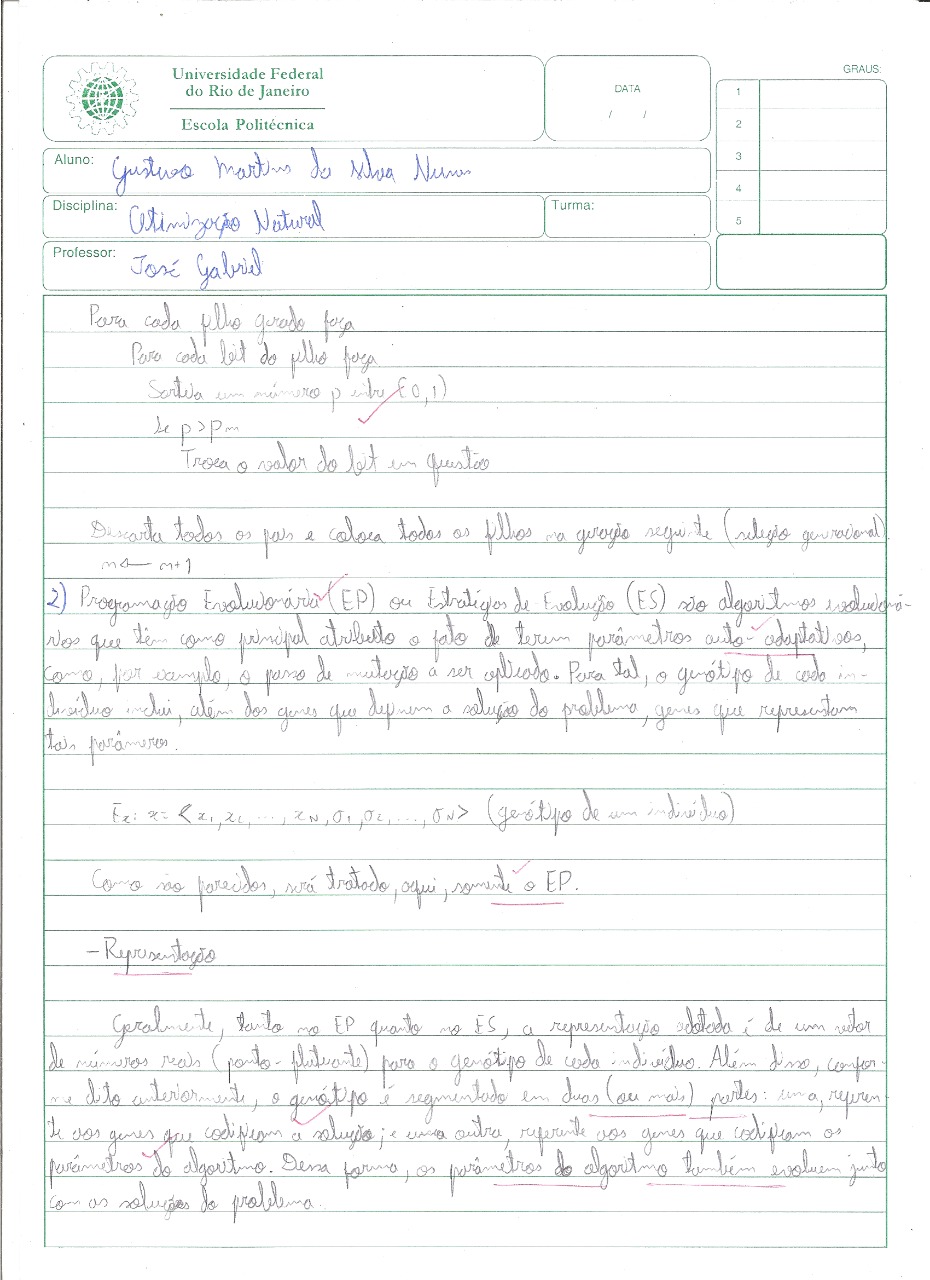 Universidade Federal
do Rio de Janeiro
Escola Politécnica
DATA
/ /
GRAUS:
1
2
3
4
5
Aluno: Gustavo Martins da Silva Nunes
Disciplina: Otimização Natural
Turma:
Professor: José Gabriel
Para cada filho gerado faça
Para cada bit do filho faça
Sorteia um número p entre [0,1)
Se p > pm
Troca o valor do bit em questão
Descarta todos os pais e coloca todos os filhos na geração seguinte (seleção geracional).
n ← n+1
2) Programação Evolucionária (EP) ou Estratégias de Evolução (ES) são algoritmos evolucioná-
rios que têm como principal atributo o fato de terem parâmetros auto-adaptativos,
como, por exemplo, o passo de mutação a ser aplicado. Para tal, o genótipo de cada in-
divíduo inclui, além dos genes que definem a solução do problema, genes que representam
tais parâmeros.
Ex: x = <x1, x2, ..., xN, σ1, σ2, ..., σN> (genótipo de um indivíduo)
Como são parecidos, será tratado, aqui, somente o EP.
- Representação
Geralmente, tanto no EP quanto no ES, a representação adotada é de um vetor
de números reais (ponto-flutuante) para o genótipo de cada indivíduo. Além disso, confor-
me dito anteriormente, o genótipo é segmentado em duas (ou mais) partes: uma, referen-
te aos genes que codificam a solução; e uma outra, referente aos genes que codificam os
parâmetros do algoritmo. Dessa forma, os parâmetros do algoritmo também evoluem junto
com as soluções do problema.